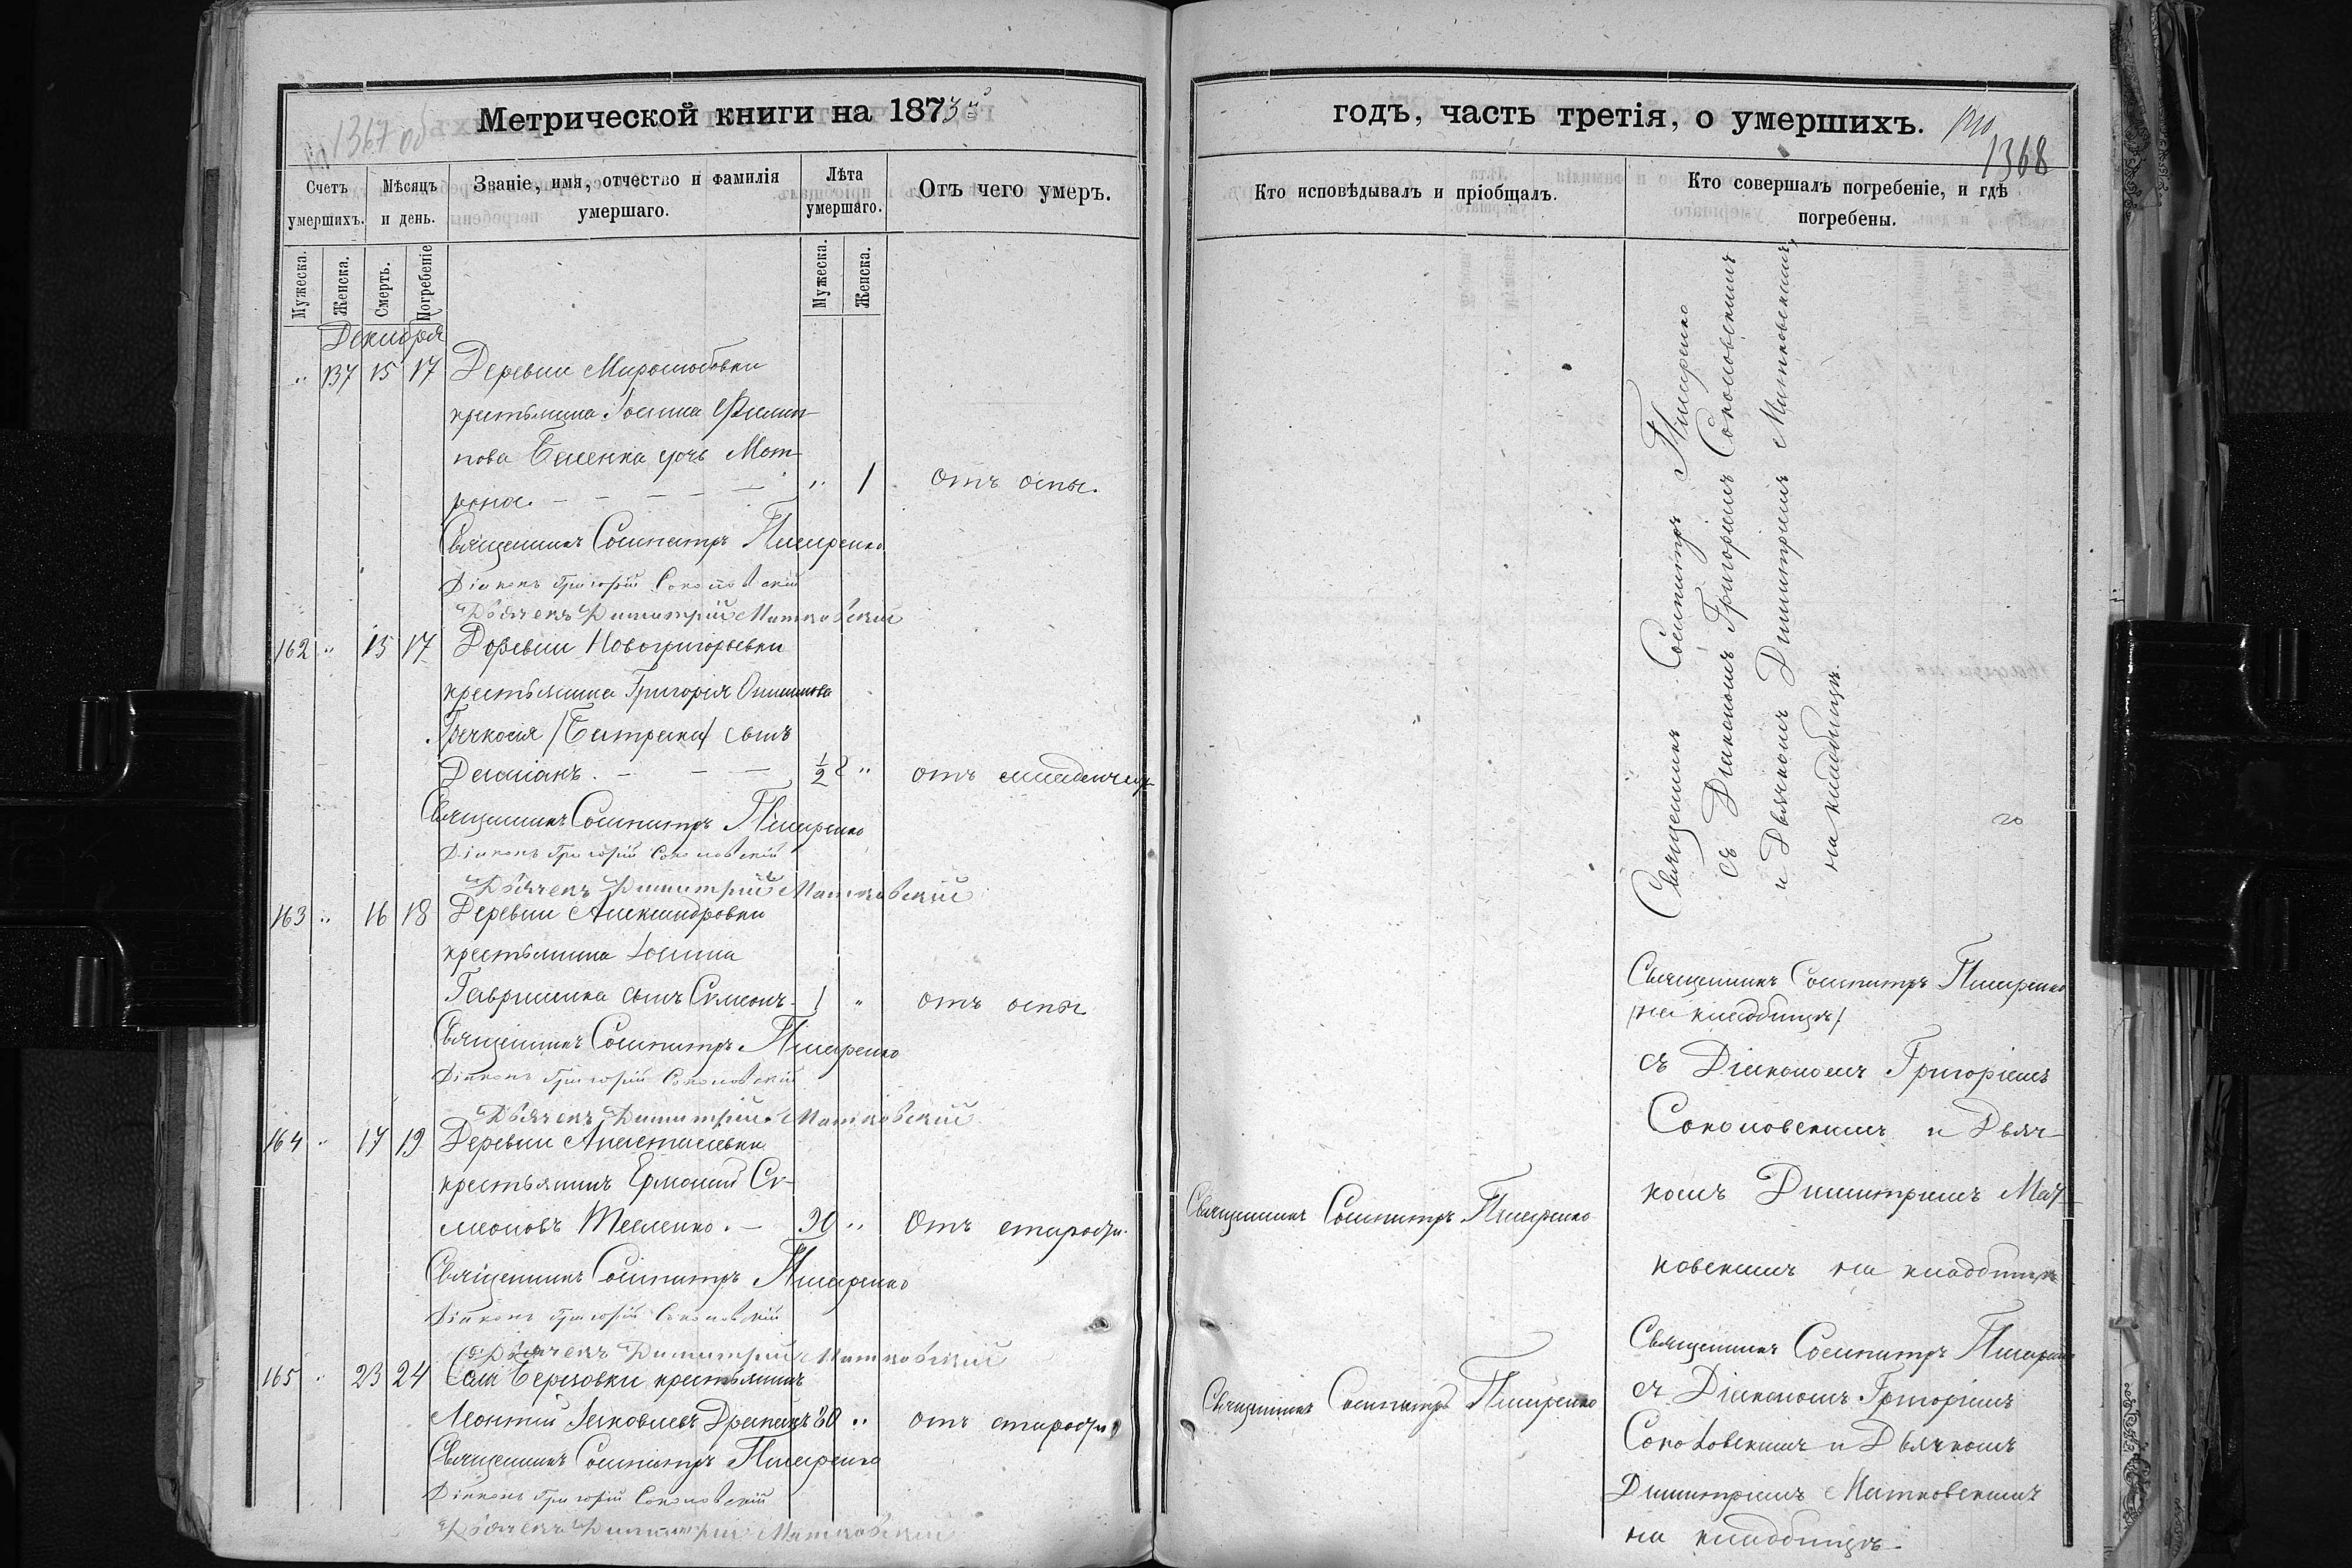 1367 об
Метрической книги на 1873й
Счетъ умершихъ.
Мѣсяцъ и день.
Званіе, имя, отчество и фамилія умершаго.
Лѣта умершаго.
Отъ чего умеръ.
Мужеска.
Женска.
Смерть.
Погребеніе
Мужеска.
Женска.
Декабря
" 137 15 17 Деревни Миролюбовки
крестьянина Іоанна Филип-
пова дочь Мот-
рона. " 1 отъ оспы.
Священникъ Сосипатръ Писаренко
Діаконъ Григорій Соколовскій
Дьячекъ Димитрій Матковскій
162 " 15 17 Деревни Новогригорьевки
крестьянина Григорія
сынъ
Даміанъ. ½ " отъ
Священникъ Сосипатръ Писаренко
Діаконъ Григорій Соколовскій
Дьячекъ Димитрій Матковскій
163 " 16 18 Деревни Александровки
крестьянина Іоанна
Гавриленка сынъ Симеонъ 1 " отъ оспы
Священникъ Сосипатръ Писаренко
Діаконъ Григорій Соколовскій
Дьячекъ Димитрій Матковскій
164 " 17 19 Деревни Анастасіевки
крестьянинъ Ермолай Си-
меоновъ 90 " Отъ старости.
Священникъ Сосипатръ Писаренко
Діаконъ Григорій Соколовскій
Дьячекъ Димитрій Матковскій
165 " 23 24 Села Березовки крестьянинъ
Леонтій Іаковлевъ 80 " отъ старости
Священникъ Сосипатръ Писаренко
Діаконъ Григорій Соколовскій
Дьячекъ Димитрій Матковскій
годъ, часть третія, о умершихъ.
1368
Кто исповѣдывалъ и пріобщалъ.
Кто совершалъ погребеніе, и гдѣ погребены.
Священникъ Сосипатръ Писаренко
съ Діакономъ Григоріемъ Соколовскимъ
и Дьячкомъ Димитріемъ Матковскимъ
на кладбищѣ.
Священникъ Сосипатръ Писаренко
/на кладбищѣ/
съ Діакономъ Григоріемъ
Соколовскимъ и Дьяч-
комъ Димитріемъ Мат-
ковскимъ на кладбищѣ
Священникъ Сосипатръ Писаренко
Священникъ Сосипатръ Писаренко
съ Діакономъ Григоріемъ
Соколовскимъ и Дьячкомъ
Димитріемъ Матковскимъ
на кладбищѣ.
Священникъ Сосипатръ Писаренко